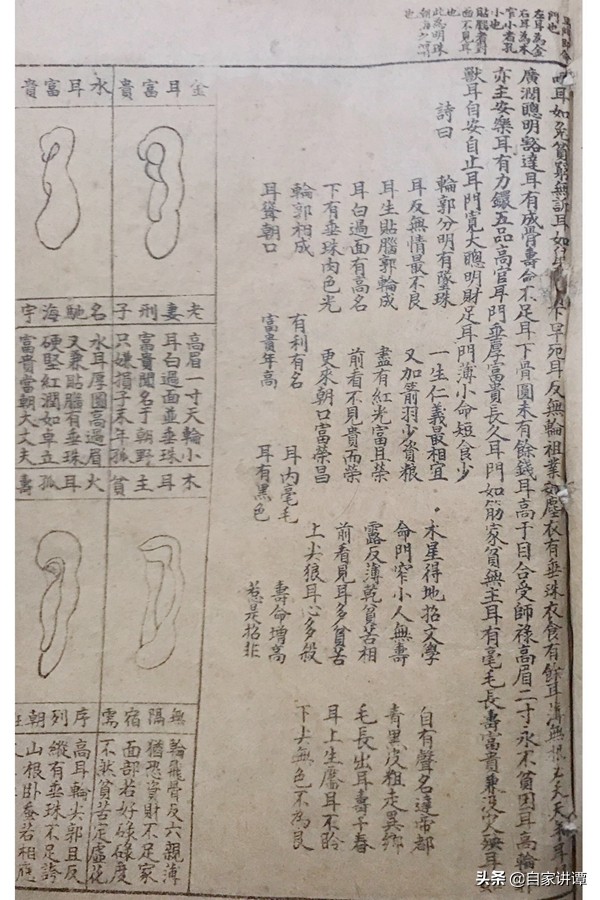 左耳為金
右耳為木
窄小者孔
小也
貼腦者對
面不見耳
也
此為明珠
耳如兔貧窮無訴耳如 下早死耳反無輪祖業如塵衣有垂珠衣食有餘耳薄無根
廣濶聰明豁達耳有成骨壽命不足耳下骨圓未有餘錢耳高于目合受師祿高眉二寸永不貧困耳高輪郭
亦主安樂耳有刀鐶五品高官耳門垂厚富貴長久耳門如筋家貧無主耳有毫毛長壽富貴兼沒少 耳如
獸耳自安自止耳門寬大聰明財足耳門薄小命短食少
詩曰
輪郭分明有墜珠 一生仁義最相宜 木星得地招文學 自有聲名達帝都
耳反無情最不良 又加箭羽少資粮 命門窄小人無壽 青黑皮粗走異鄉
耳生貼腦郭輪成 盡有紅光富且榮 露反薄乾貧苦相 毛長出耳壽千春
耳白過面有高名 前看不見貴而榮 前看見耳多貧苦 耳上生黶耳不聆
下有垂珠肉色光 更來朝口富榮昌 上尖狼耳心多殺 下尖無色不為良
輪郭相成 有利有名 耳內毫毛 壽命增高
耳聳朝口 富貴年高 耳有黑色 惹是招非
金耳富貴
老妻刑子
高眉一寸天輪小
耳白過面並垂珠
富貴聞名于朝野
只嫌損子末年孤
水耳富貴
名馳海宇
水耳厚圓高過眉
又兼貼腦有垂珠
硬堅紅潤如卓立
富貴當朝大丈夫
木耳主貧
無隔宿需
輪飛骨反六親薄
猶恐貲財不足家
面部若好碌碌度
不然貧苦定虛花
火耳孤壽
序列朝班
高耳輪尖郭且反
縱有垂珠不足誇
山根卧蚕若相應
头条 @自家讲谭